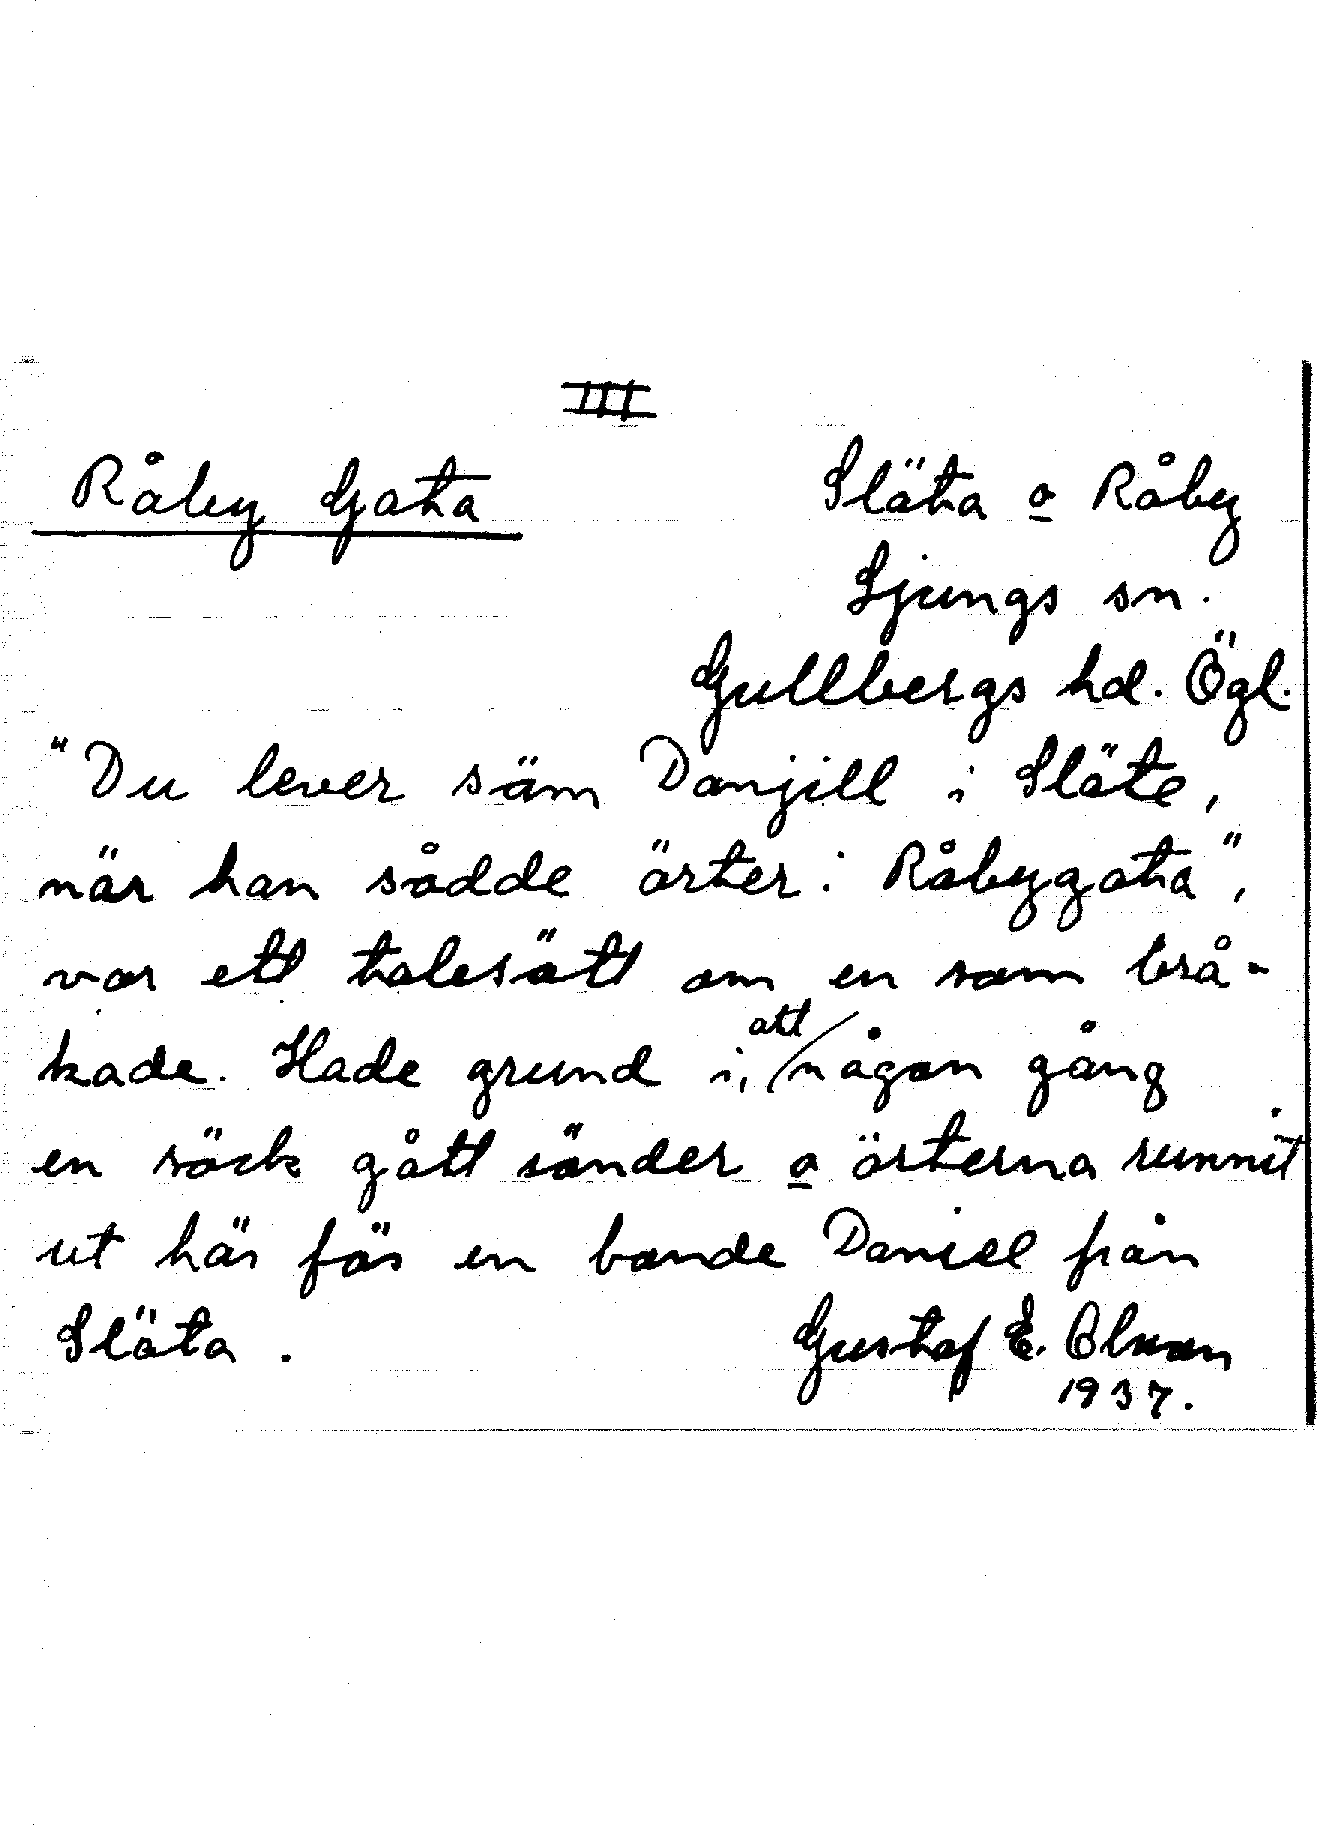 III
Råby Gata
Släta o Råby
Ljungs sn.
Gullbergs hd. Ögl.
"Du lever säm Danjill i Släte,
när han sådde ärter i Råbygata",
var ett talesätt om en som brå-
kade. Hade grund i, att någon gång
en säck gått sönder o ärterna runnit
ut här för en bonde Daniel från
Släta.
Gustaf E. Olsson
1937.